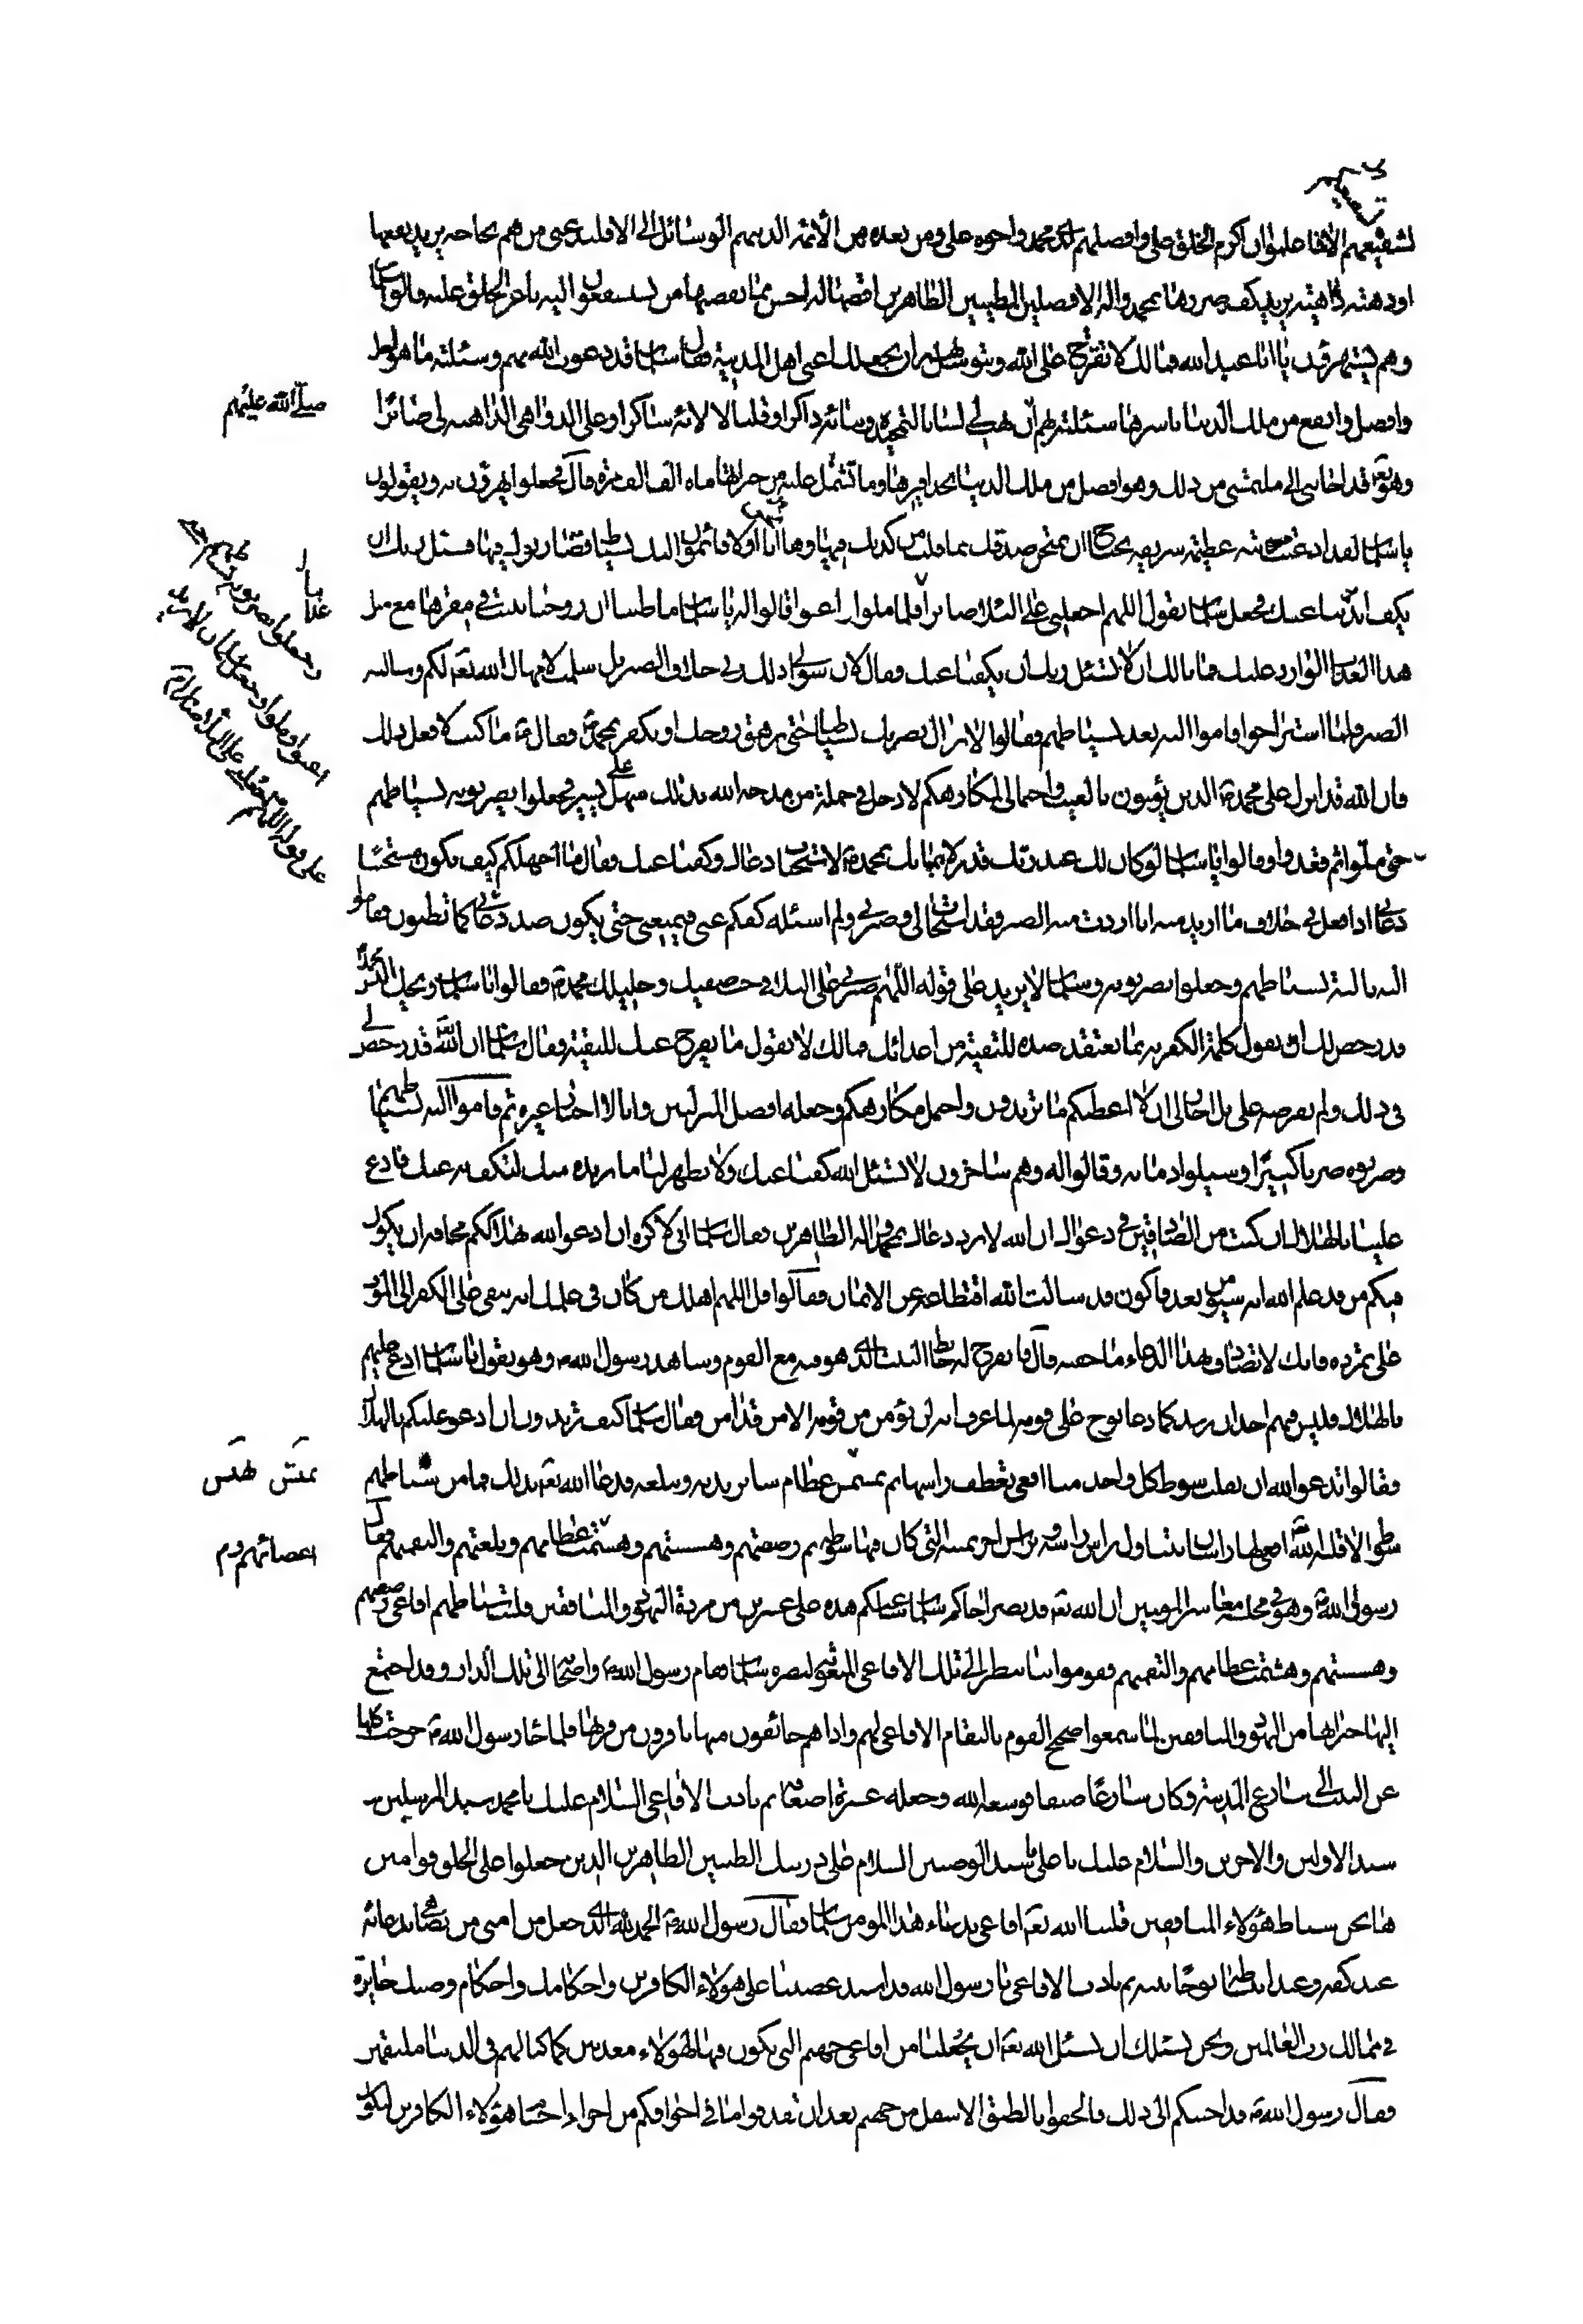 لشفيعهم الا فاعلموا ان اكرم الخلق على وافضلهم لدى محمد واخوه على ومن بعده من الأئمة الذين هم الوسائل الى الا فليدعنى من هم بحاجة يريد نفعها
او دهته داهية يريد كف ضررها بمحمد واله الافضلين الطيبين الطاهرين اقضها له احسن مما يقضيها من تستشفعون اليه باعز الخلق عليه قالوا يا سلمان
وهم يستهزؤن يا ابا عبد الله فما لك لا تقترح على الله وتتوسل بهم ان يجعلك اغنى اهل المدينة فقال سلمان قد دعوت الله بهم وسئلته ما هو اجل
وافضل وانفع من ملك الدنيا باسرها سئلته بهم ان يهب لى لسانا لتمجيده وثنائه ذاكرا وقلبا لالائه شاكرا وعلى الدواهى الداهية لى صابرا
صلى الله عليهم
وهو تع قد اجابنى الى ملتمسى من ذلك وهو افضل من ملك الدنيا بحذافيرها وما تشتمل عليه من خيراتها مائة الف الف مرة قال فجعلوا يهزؤن به ويقولون
يا سلمان لقد ادعيت مرتبة عظيمة شريفة نحتاج ان نمتحن صدقك عما قلت من كذبك فيها وها انا اولا قائمون اليك بسياطنا فضاربوك بها فسئل ربك ان
يكف ايدينا عنك فجعل سلمان يقول اللهم اجعلنى على البلاء صابرا فلما ملوا واعيوا قالوا له يا سلمان ما ظننا ان روحا يثبت فى مقرها مع مثل
هذا العذاب الوارد عليك فما بالك ان لا تسئل ربك ان يكفنا عنك فقال لان سؤالى ذلك ربى خلاف الصبر بل سلمت لامهال الله تع لكم وسالته
الصبر فلما استراحوا قاموا اليه بعد بسياطهم فقالوا لا نزال نضربك بسياطنا حتى تزهق روحك او تكفر بمحمد ص فقال ما كنت لافعل ذلك
فان الله قد انزل على محمد ص الذين يؤمنون بالغيب واحتمالى لمكارهكم لادخل فى جملة من مدحه الله بذلك سهل على يسير فجعلوا يضربونه بسياطهم
حتى ملوا ثم قعدوا وقالوا يا سلمان لو كان لك عند ربك قدر لايمانك بمحمد ص لاستجاب دعاك وكفنا عنك فقال ما اجهلكم كيف يكون مستجيبا
دعائى اذا فعل بى خلاف ما اريد منه انا اردت منه الصبر فقد استجاب لى وصبرنى ولم اسئله كفكم عنى فيمنعنى حتى يكون ضد دعائى كما تظنون فقاموا
اليه ثالثة بسياطهم وجعلوا يضربونه وسلمان لا يزيد على قوله اللهم صبرنى على البلاء فى حب صفيك وخليلك محمد ص فقالوا يا سلمان ويحك اليس محمد
قد رخص لك ان تقول كلمة الكفر به بما تعتقد ضده للتقية من اعدائك فما لك لا تقول ما يفرج عنك للتقية فقال سلمان ان الله قد رخص لى
فى ذلك ولم يفرضه على بل اجاز لى ان لا اعطيكم ما تريدون واحتمل مكارهكم وجعله افضل المنزلتين وانا لا اختار غيره ثم قاموا اليه بسياطهم
وضربوه ضربا كثيرا وسيلوا دمائه وقالوا له وهم ساخرون لا تسئل الله كفنا عنك ولا تظهر لنا ما نريده منك لنكف به عنك فادع
علينا بالهلاك ان كنت من الصادقين فى دعواك ان الله لا يرد دعاك بمحمد واله الطاهرين فقال سلمان انى لاكره ان ادعو الله بهلاككم مخافة ان يكون
فيكم من قد علم الله انه سيؤمن بعد فاكون قد سالت الله اقتطاعه عن الايمان فقالوا قل اللهم اهلك من كان فى علمك انه يبقى على الكفر الى الموت
على تمرده فانك لا تصادف بهذا الدعاء ما خفته قال فانفرج له حائط البيت الذى هو فيه مع القوم وشاهد رسول الله ص وهو يقول يا سلمان ادع عليهم
بالهلاك فليس فيهم احد يرشد كما دعا نوح على قومه لما عرف انه لن يؤمن من قومه الا من قد امن فقال سلمان كيف تريدون ان ادعو عليكم بالهلاك
فقالوا تدعو الله ان يقلب سوط كل واحد منا افعى تعطف راسها ثم تمشمش عظام سائر بدنه وتبلعه فدعا الله تع بذلك فما من سياطهم
تمشش تهشش
سوط الا قلبه الله افعى لها راسان تتناول براس راسه وبراس اخر يمينه التى كان فيها سوطه ثم رضضتهم وهشمتهم وهشمت عظامهم وبلعتهم والتقمتهم فقال
اعضائهم وم
رسول الله ص وهو فى مجلسه معاشر المؤمنين ان الله تع قد نصر اخاكم سلمان ساعتكم هذه على عشرين من مردة اليهود والمنافقين قلبت سياطهم افاعى رضضتهم
وهشمتهم وهشمت عظامهم والتقمتهم فقوموا بنا ننظر الى تلك الافاعى المبعوثة لنصرة سلمان فقام رسول الله ص واصحابه الى تلك الدار وقد اجتمع
اليها جيرانها من اليهود والمنافقين لما سمعوا ضجيج القوم بالتقام الافاعى لهم واذا هم خائفون منها نافرون من قربها فلما جاء رسول الله ص خرجت كلها
عن البيت الى شارع المدينة وكان شارعا ضيقا فوسعه الله وجعله عشرة اضعافه ثم نادت الافاعى السلام عليك يا محمد سيد المرسلين
سيد الاولين والاخرين والسلام عليك يا على يا سيد الوصيين السلام على ذريتك الطيبين الطاهرين الذين جعلوا على الخلق قوامين
ها نحن سياط هؤلاء المنافقين قلبنا الله تع افاعى بدعاء هذا المؤمن سلمان فقال رسول الله ص الحمد لله الذى جعل من امتى من يضاهى بدعائه
عند كفه وعند انبساطه نوحا نبيه ثم نادت الافاعى يا رسول الله قد اشتد غضبنا على هؤلاء الكافرين واحكامك واحكام وصيك جايزة
فى ممالك رب العالمين ونحن نسئلك ان تسئل الله تع ان يجعلنا من افاعى جهنم التى نكون فيها لهؤلاء معذبين كما كنا لهم فى الدنيا ملتقمين
فقال رسول الله ص قد اجبتكم الى ذلك فالحقوا بالطبق الاسفل من جهنم بعد ان تقذفوا ما فى اجوافكم من اجزاء اجسام هؤلاء الكافرين ليكون